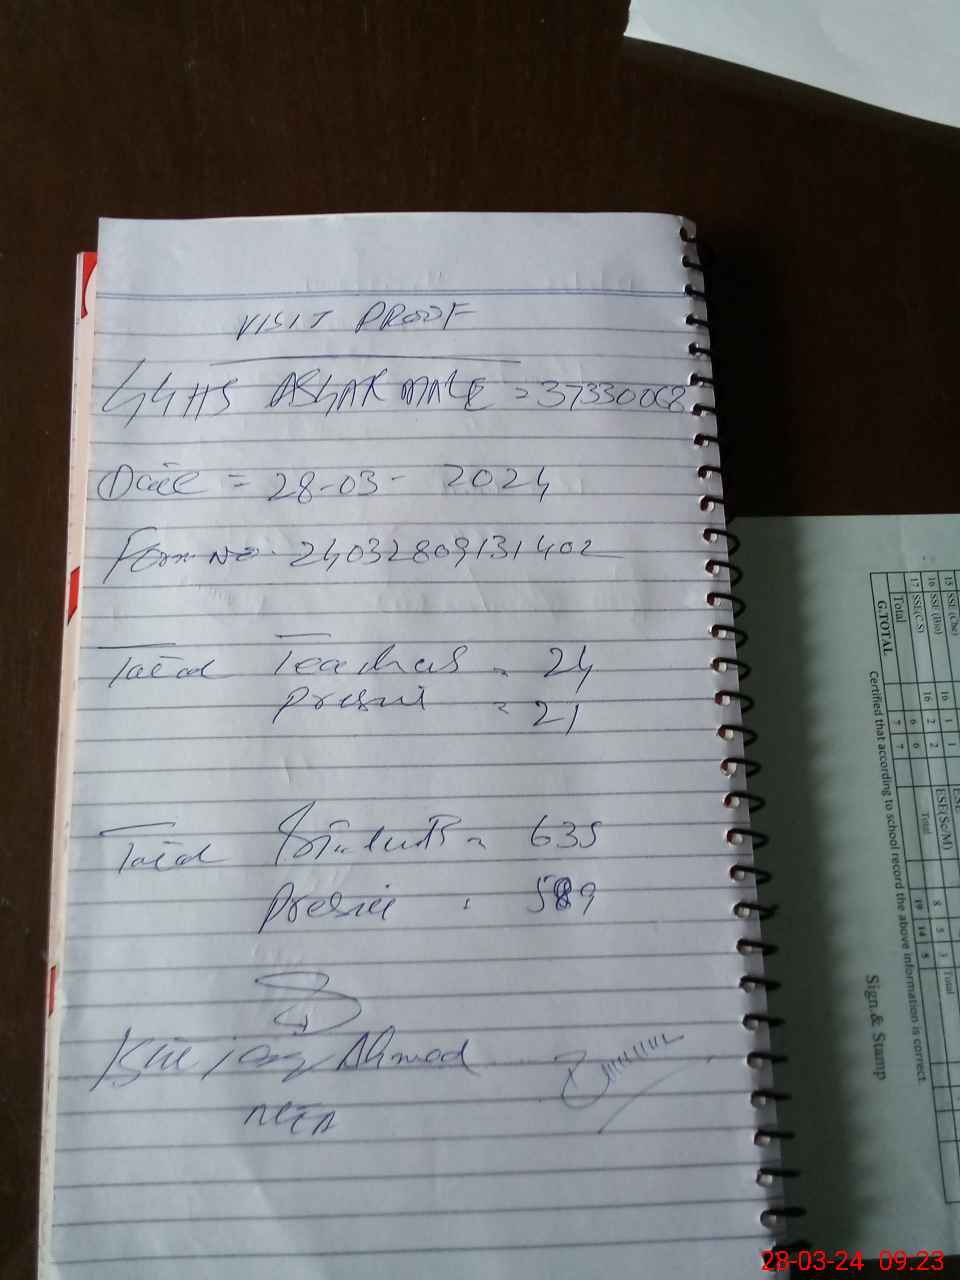 VISIT PROOF
GGHS ASGAR MALE = 37330068
Date = 28-03-2024
Form No. 24032809131402
Total Teachers = 24
present = 21
Total Students = 635
present = 589
Ahmed
MEA
28-03-24 09:23
15 SSE (Che)
16 SSE (Bio) 16 1 1
17 SSE(CS) 16 2 2
Total 6 6
G.TOTAL 7 7
ESE
ESE(Sc/M) 8 5 3 Total
Total 19 14 5
Certified that according to school record the above information is correct.
Sign.& Stamp